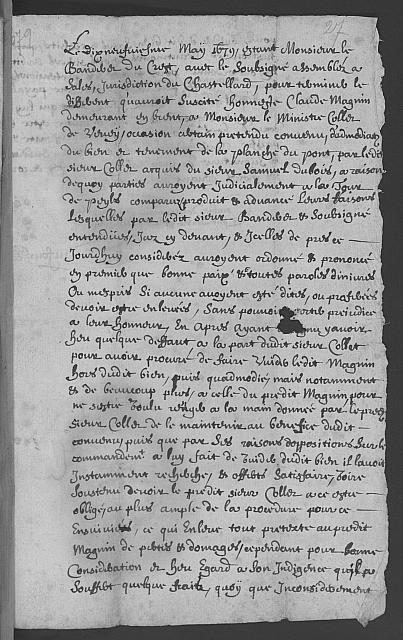 27
Le dixneufuiesme May 1679, estant Monsieur le
Banderet du Crest, auec le Soubsigné assemblez a
Sales, Jurisdiction du Chastellard, pour terminer le
different quauroit Suscité honneste Claude Magnin
demeurant en Brent, a Monsieur le Ministre Coller
de Vevey, occasion certain pretendu conuenu, dadmodiation
du bien et tenement de la planche du pont, par ledit
sieur Coller acquis du sieur Samuel dubois, a raison
dequoy parties auroyent Judicialement a la Tour
de peyls comparu, produit & aduancé leurs raisons
lesquelles par ledit sieur Banderet & Soubsigné
entendües, Jcy en deuant, & Jcelles de pres ce
Jourdhuy considerer auroyent ordonné & prononcé
en premier que bonne paix & toutes paroles dinjures
Ou mespris Si aucune auoyent esté dites, ou proferées
deuoir estre enleuées, Sans pouuoir porter prejudice
a leur honneur, En apres ayant yauoir
heu quelque deffaut a la part dudit sieur Collet
pour auoir procuré de faire Vuider ledit Magnin
hors dudit bien, puis quadmodié, mais notamment
& de beaucoup plus, a celle du predit Magnin pour
ne sestre Voulu renger a la main donnée par le predit
sieur Coller de le maintenir au benefice dudit
conuenu, puis que par Ses raisons dopposition Sur le
commandemt a luy fait de Vuider dudit bien il lauoit
Instamment recherché, & offert Satisfaire, voire
Soustenu deuoir le predit sieur Coller a ce estre
obligé, au plus ample de la procedure pour ce
Ensuiuies, ce qui Enleue tout pretexte au predit
Magnin de pertes & domages, cependant pour bonne
Consideration et heu Egard a son Indigence quil a
Souffert quelque fraix, quoy que Inconsiderement